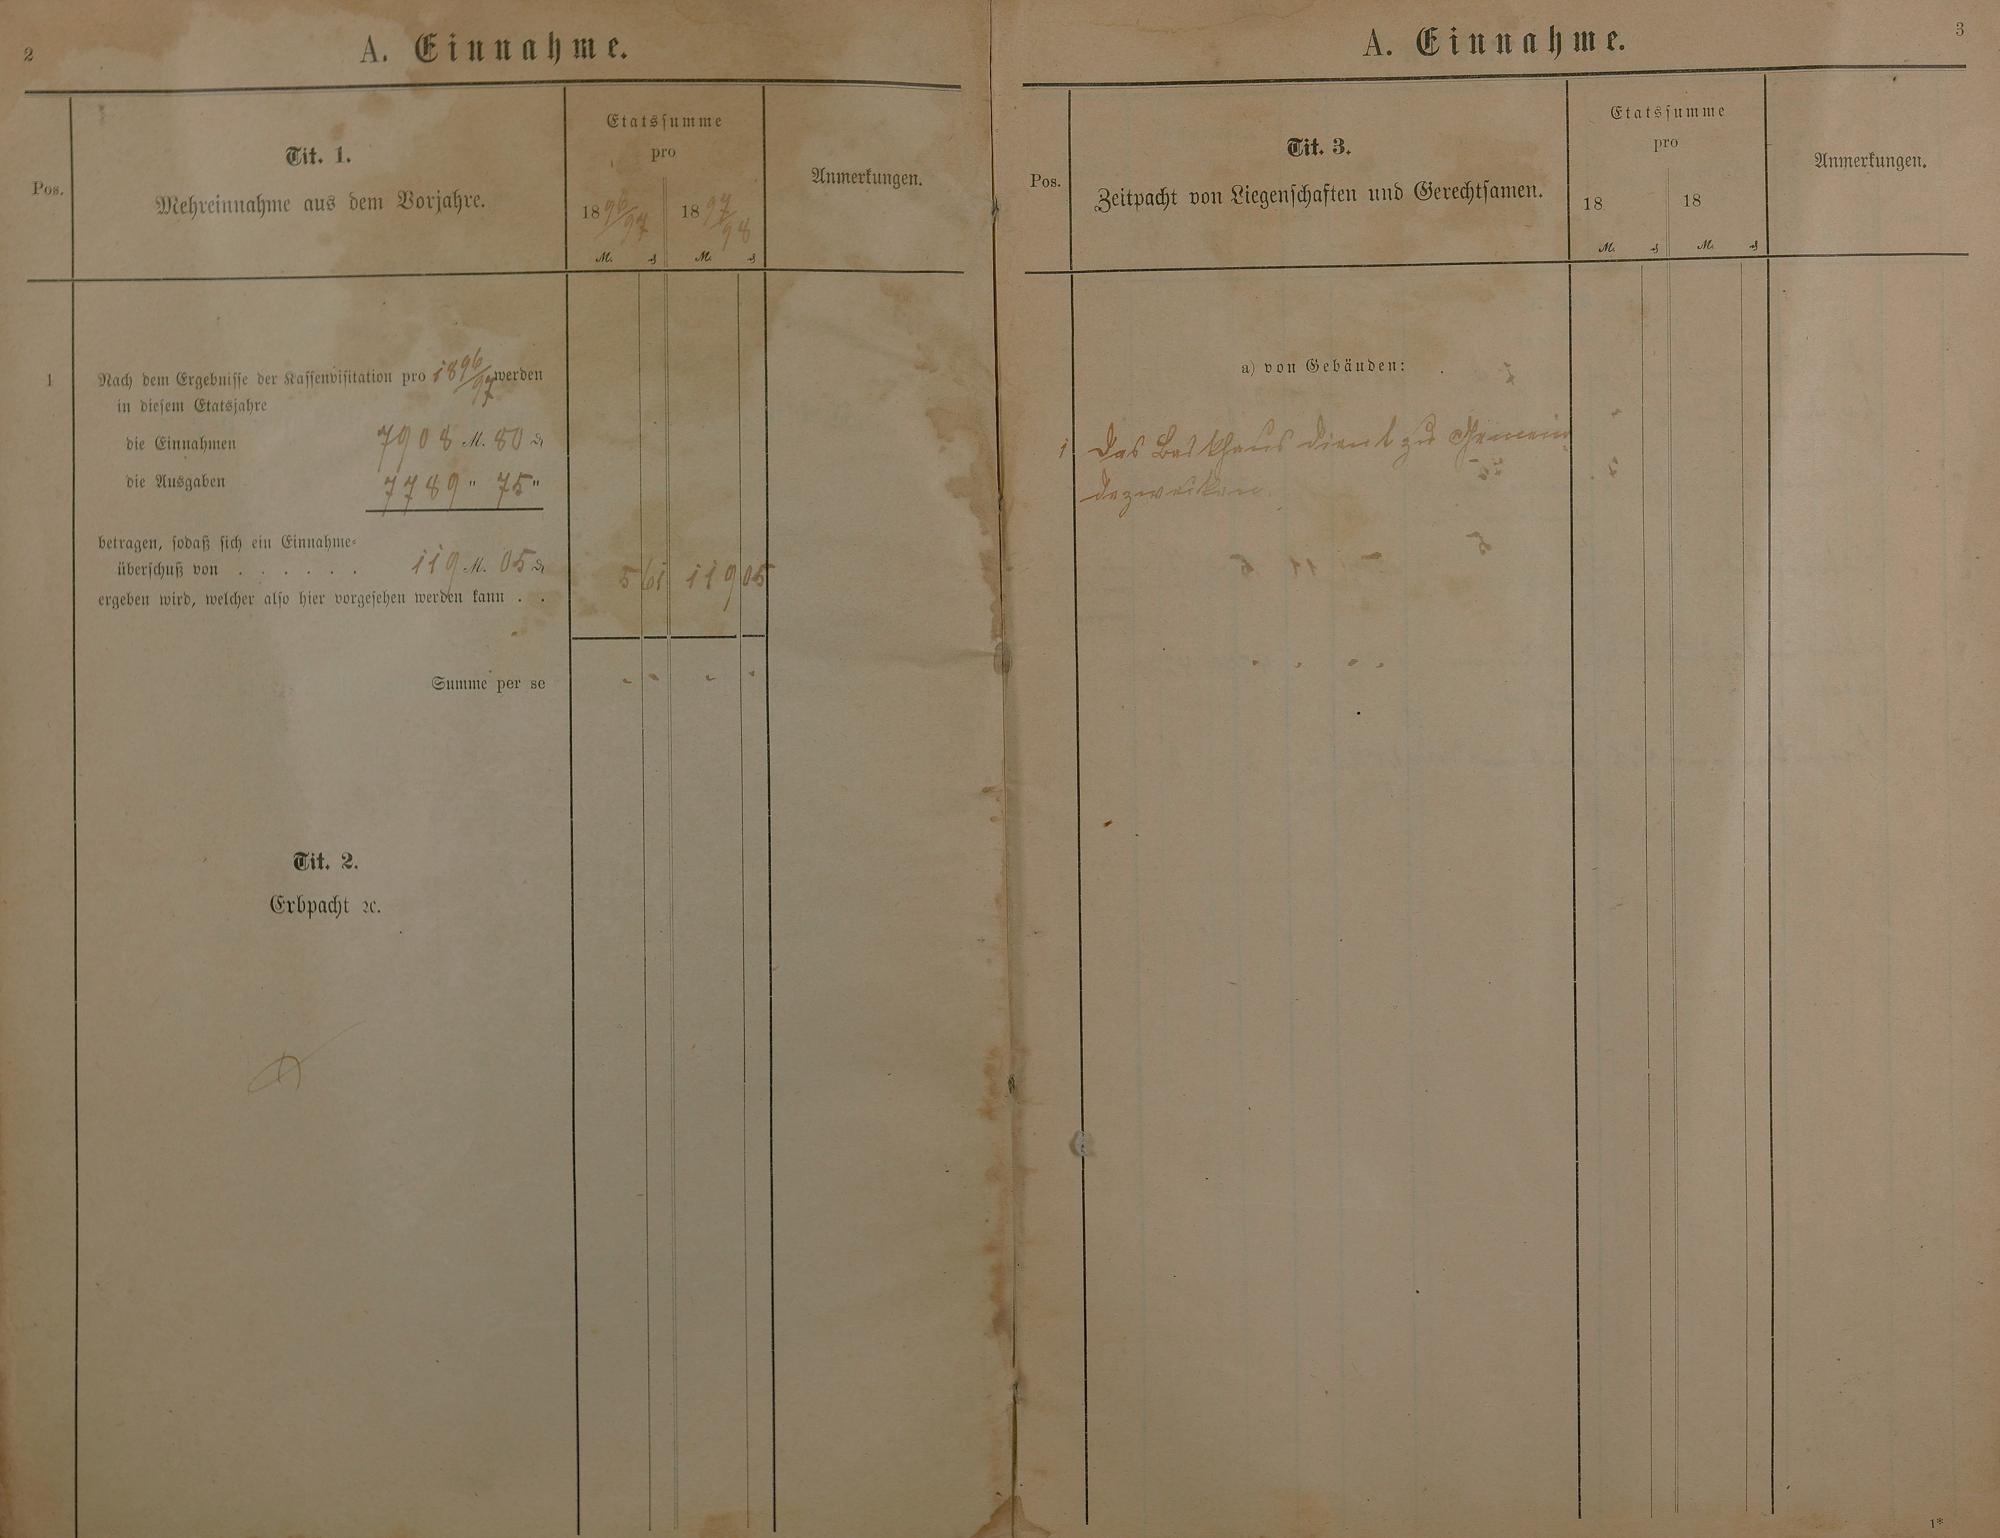 2
A. Einnahme.
Pos.
Tit. 1.
Mehreinnahme aus dem Vorjahre.
Etatssumme
pro
1896/97 1897/98
M. ₰ M. ₰
Anmerkungen.
1 Nach dem Ergebnisse der Kassenvisitation pro 1896/97 werden
in diesem Etatsjahre
die Einnahmen 7908 M. 80 ₰
die Ausgaben 7789 " 75 "
betragen, sodaß sich ein Einnahme-
überschuß von . . . . . . 119 M. 05 ₰ 5 61 119 05
ergeben wird, welcher also hier vorgesehen werden kann . .
Summe per se " " " "
Tit. 2.
Erbpacht ꝛc.
3
A. Einnahme.
Pos.
Tit. 3.
Zeitpacht von Liegenschaften und Gerechtsamen.
Etatssumme
pro
18 18
M. ₰ M. ₰
Anmerkungen.
a) von Gebäuden:
1 Das Backhaus dient zu Gemein
dezwecken.
1*